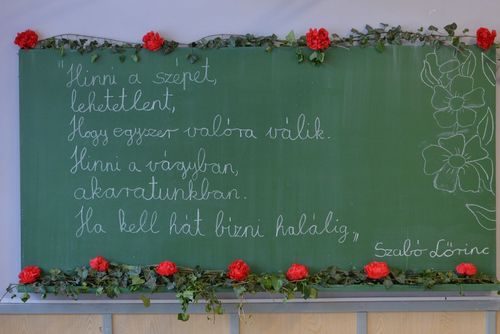 "Hinni a szépet,
lehetetlent,
Hogy egyszer valóra válik.
Hinni a vágyban,
akaratunkban.
Ha kell hát bízni halálig„
Szabó Lőrinc